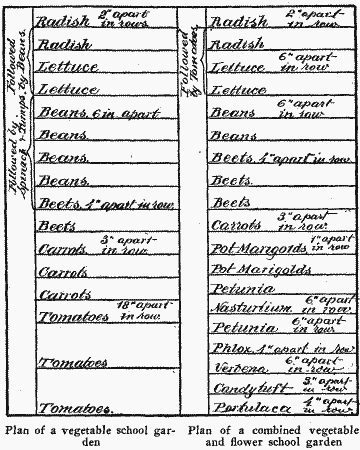 Followed by Spinach & Turnips, by Beans.
Followed
Radish 2" apart in rows
Radish
Lettuce
Lettuce
Beans, 6 in. apart
Beans
Beans.
Beans.
Beets, 4" apart in row
Beets
Carrots 3" apart in row
Carrots
Carrots
Tomatoes 18" apart in row.
Tomatoes
Tomatoes.
Plan of a vegetable school gar-
den
Followed by Tomatoes,
Radish 2" apart in row
Radish
Lettuce 6" apart in row
Lettuce
Beans 6" apart in row
Beans
Beets, 4" apart in row
Beets.
Beets
Carrots 3" apart in row
Pot Marigolds 1" apart in row
Pot Marigolds
Petunia
Nasturtium 6" apart in row
Petunia 6" apart in row
Phlox, 4" apart in row
Verbena 6" apart in row
Candytuft 3" apart in row
Portulaca 4" apart in row
Plan of a combined vegetable
and flower school garden